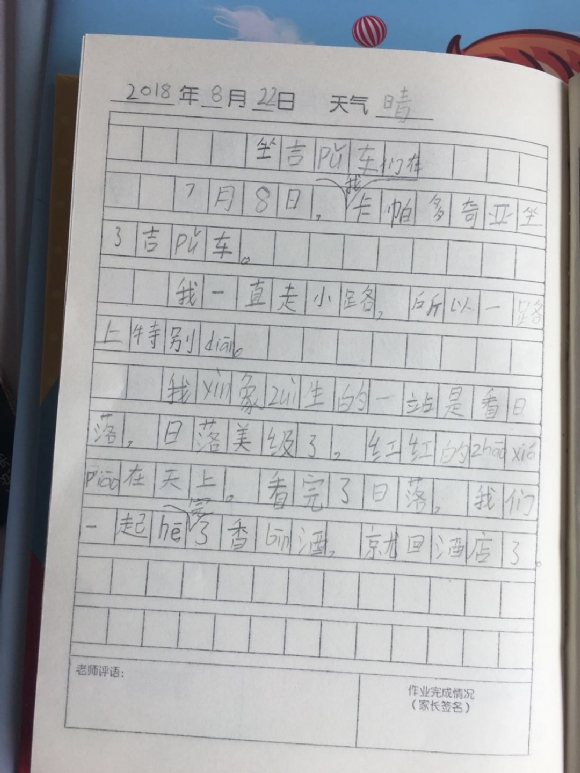 2018年8月22日 天气 晴
坐吉pǔ车
7月8日，我们在卡帕多奇亚坐
了吉pǔ车。
我一直走小路，所以一路
上特别diān。
我xìn象zuì生的一站是看日
落，日落美级了。红红的zhāo xiá
piāo在天上。看完了日落，我们
一起hē完了香bīn酒，就回酒店了。
老师评语：
作业完成情况
（家长签名）